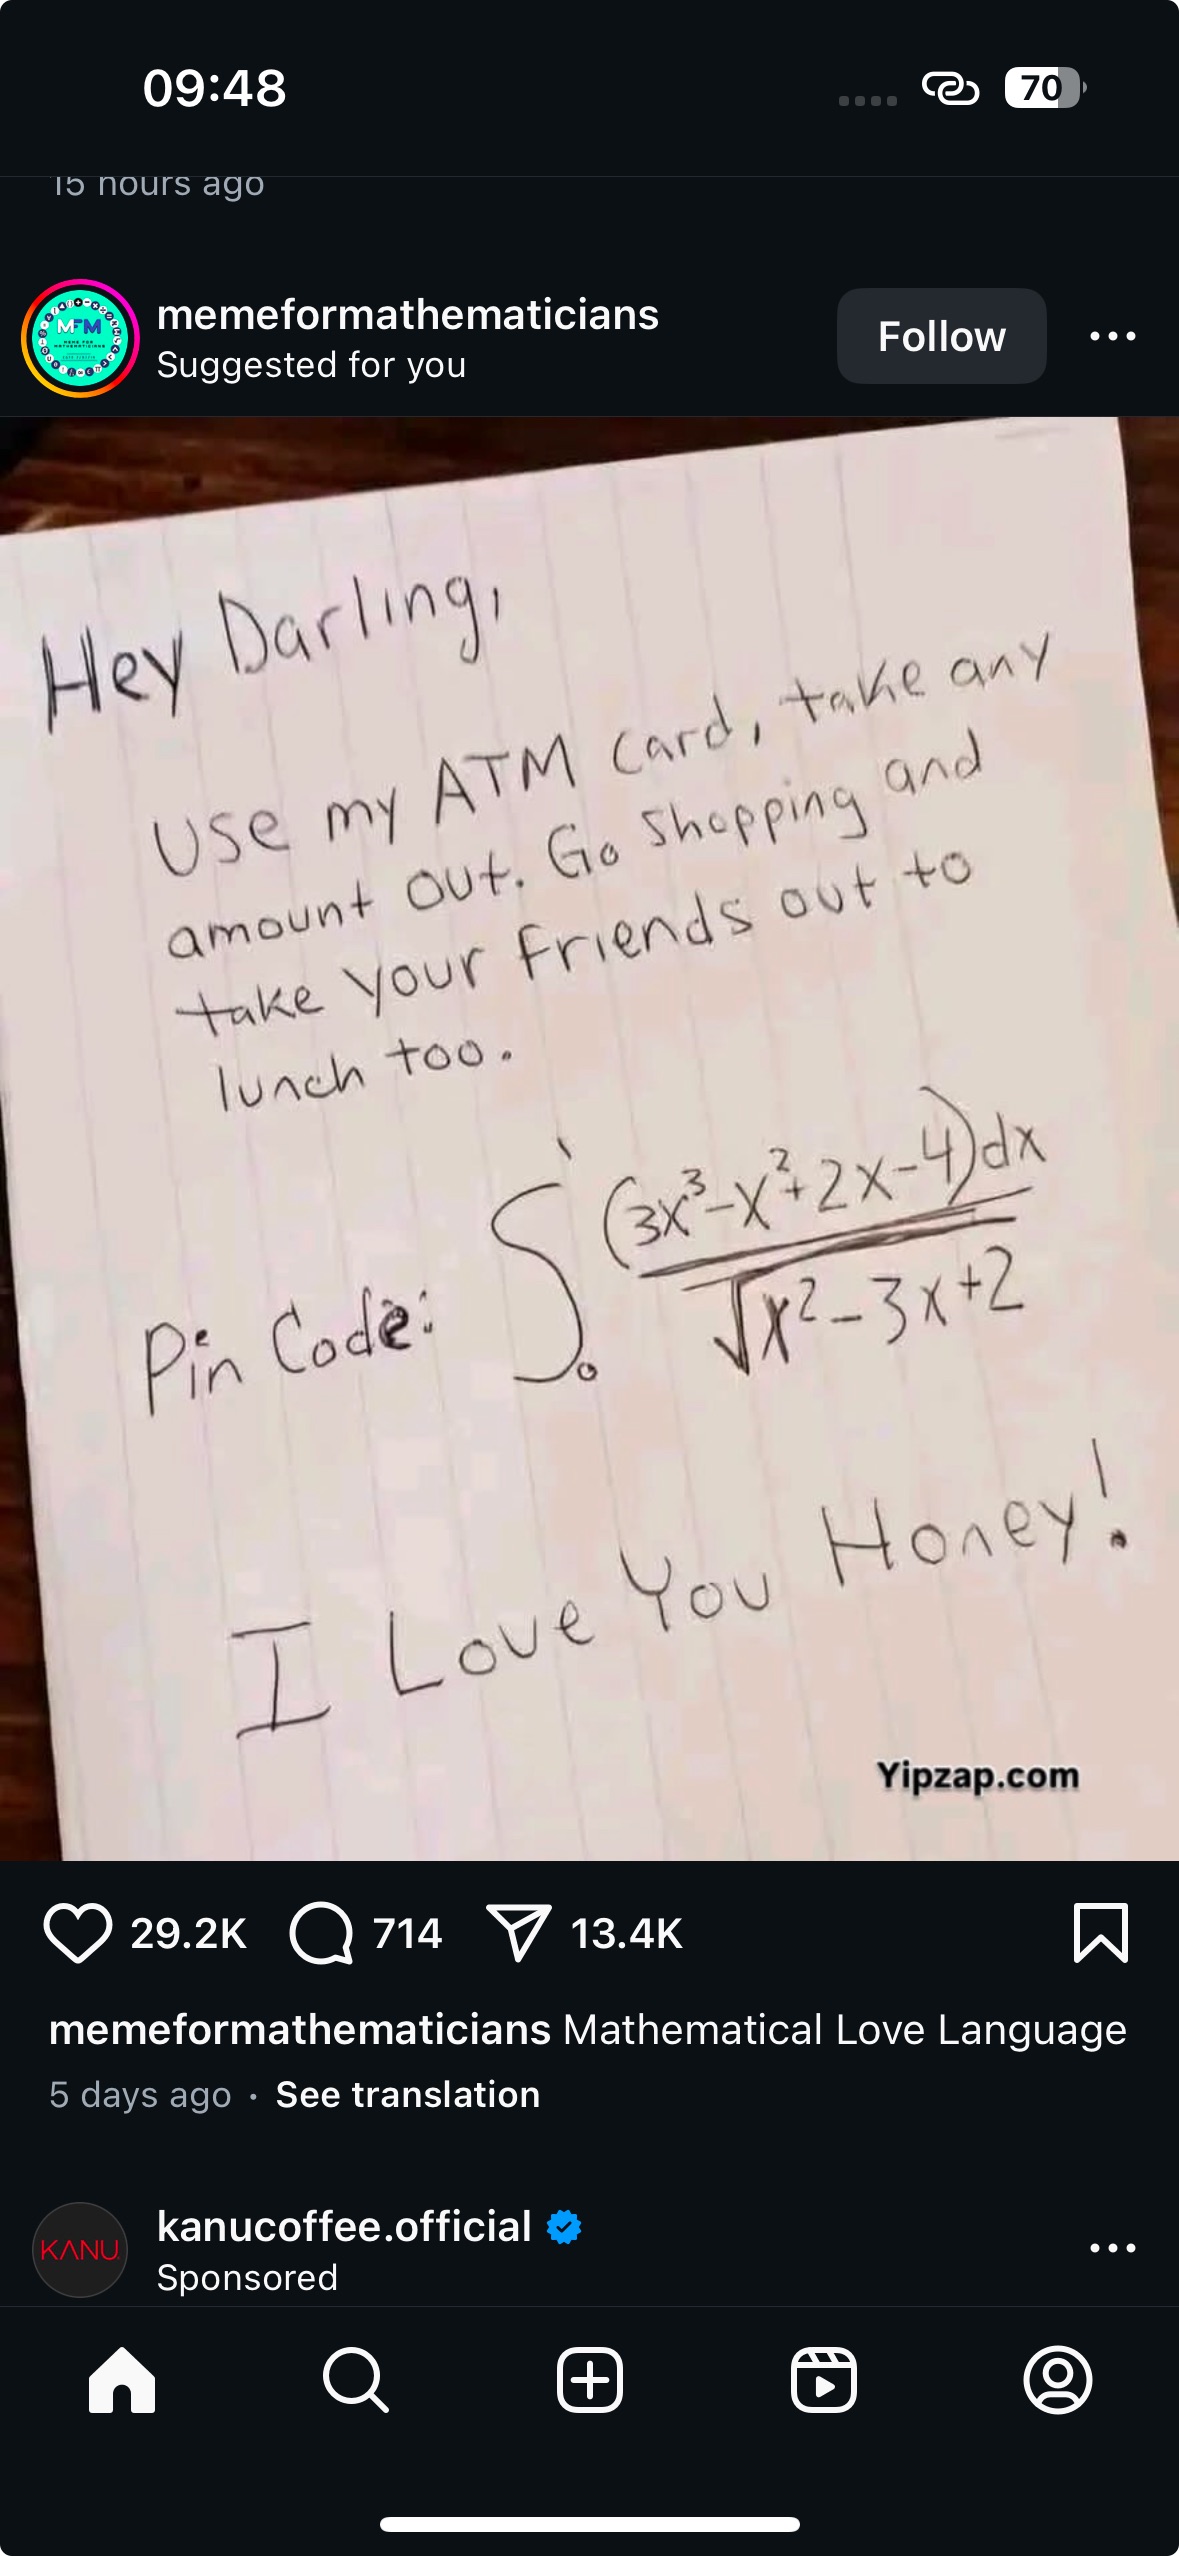 09:48
70
15 hours ago
MFM
memeformathematicians
Suggested for you
Follow
Hey Darling,
Use my ATM card, take any
amount out. Go shopping and
take your friends out to
lunch too.
Pin Code: ∫₀¹ (3x³-x²+2x-4)dx / √x²-3x+2
I Love You Honey!
Yipzap.com
29.2K 714 13.4K
memeformathematicians Mathematical Love Language
5 days ago · See translation
KANU
kanucoffee.official
Sponsored